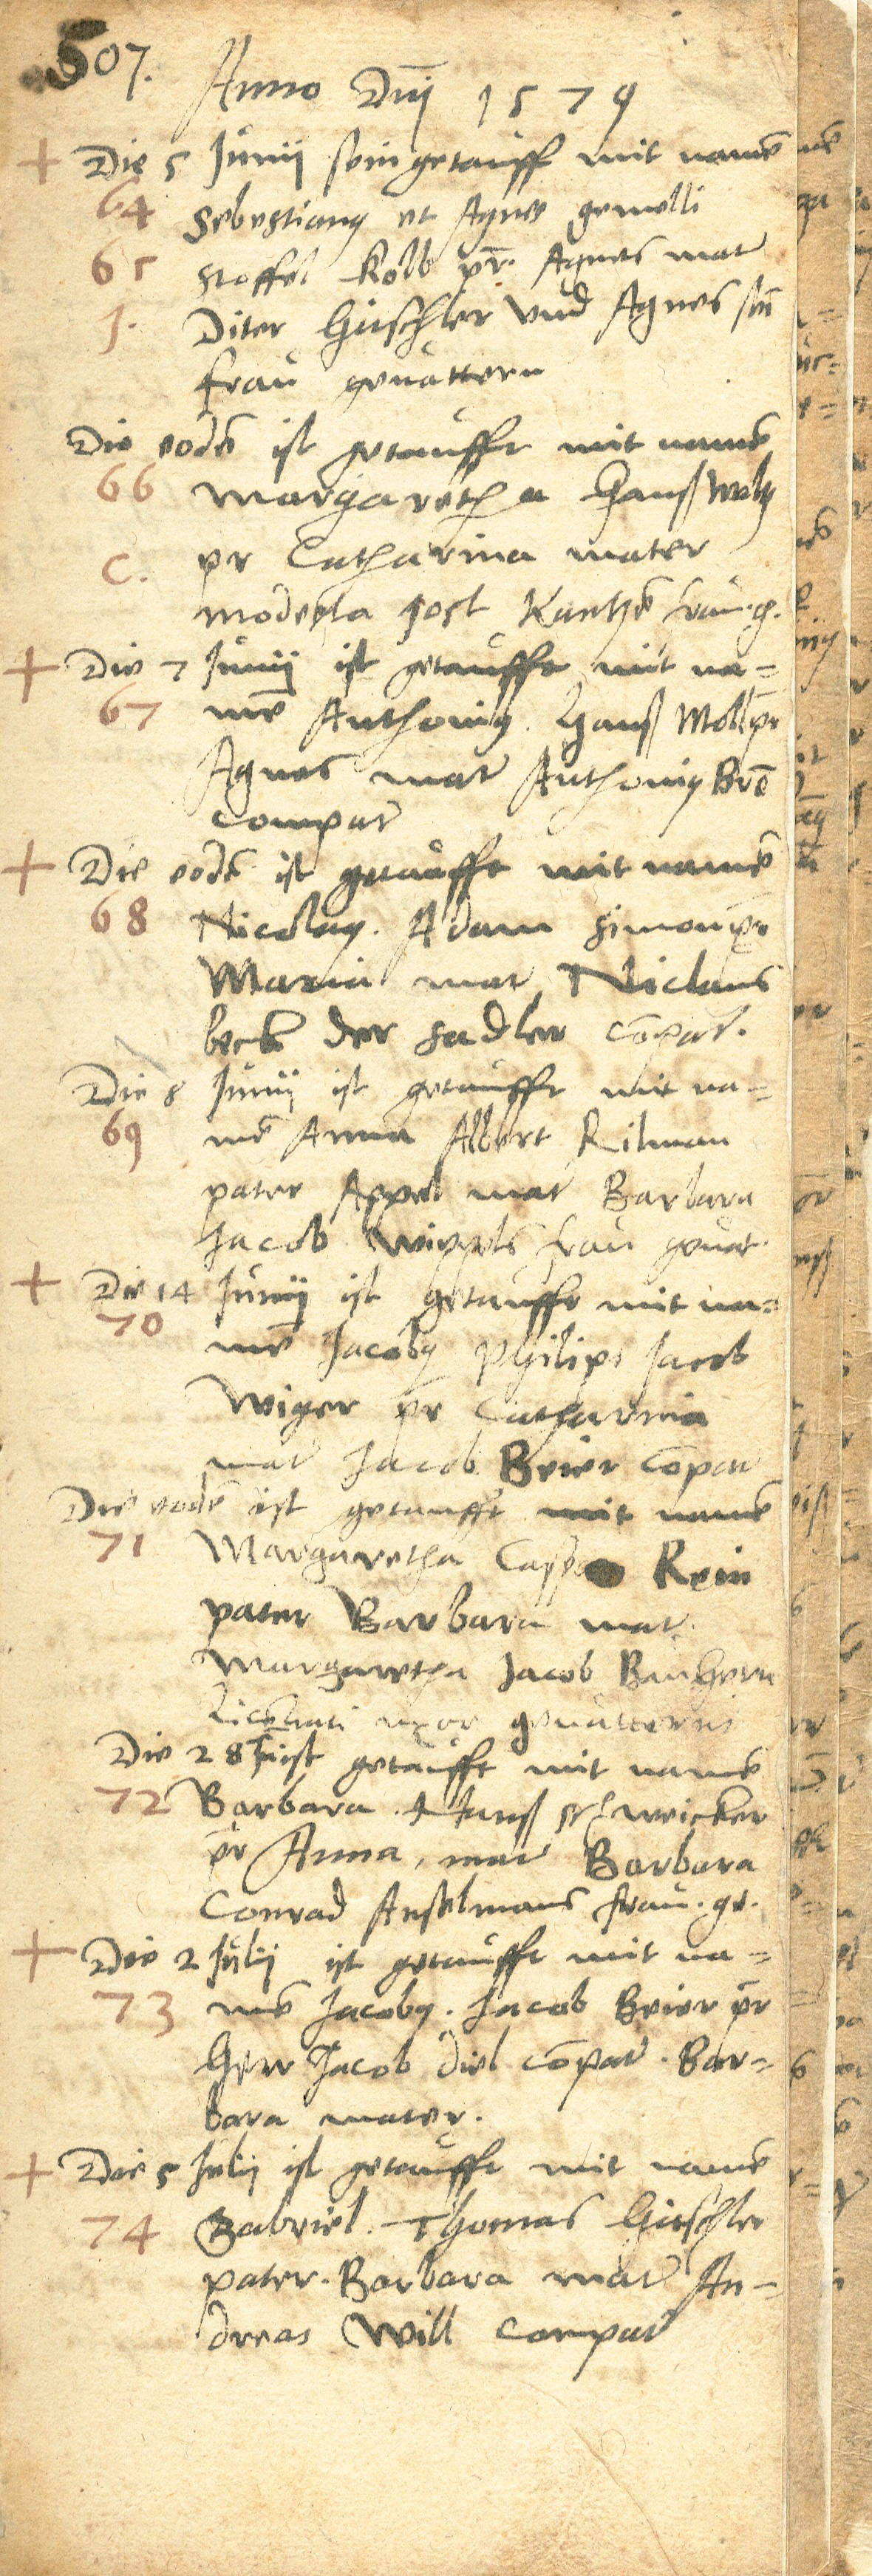 507.
Anno Dnj 1579
+ Die 5 Junij sein getaufft mit namē
64 Sebestianꝯ et Agnes gemelli
65 Stoffel Kolb pr. Agnes mat
J. Diter Hirschler vnd Agnes sein
frau geuattern
Die eodē ist getaufft mit namē
66 Margaretha Hanß
C. pr Catharina mater
Modesta Jost Kuntzē frau. g.
+ Die 7 Junij ist getaufft mit na=
67 mē Anthoniꝯ. Hanß Moll pr
Agnes mat Anthoniꝯ
Compat
+ Die eodē ist getaufft mit namē
68 Nicolaꝯ. Adam Simon pr
Maria mat Niclaus
beck der sadler Cōpat.
Die 8 Junij ist getaufft mit na=
69 mē Anna Albert Rilman
pater Appel mat Barbara
Jacob Wippels frau geuat.
+ Die 14 Junij ist getaufft mit na=
70 mē Jacobꝯ Philips Jacob
Wiger pr Catharina
mat Jacob Beier Cōpat
Die eodē ist getaufft mit namē
71 Margaretha Rein
pater Barbara mat.
Margaretha Jacob
Licentiati uxor geuatterin
Die 28 ist getaufft mit namē
72 Barbara. Hanß Schweicker
pr Anna, mat Barbara
Conrad Anselmans frau. ge.
+ Die 2 Julij ist getaufft mit na=
73 mē Jacobꝯ. Jacob Beier pr
Herr Jacob Diel Cōpat. Bar=
bara mater.
+ Die 5 Julij ist getaufft mit namē
74 Gabriel. Thomas Hirschler
pater. Barbara mat An=
dreas Will Compat